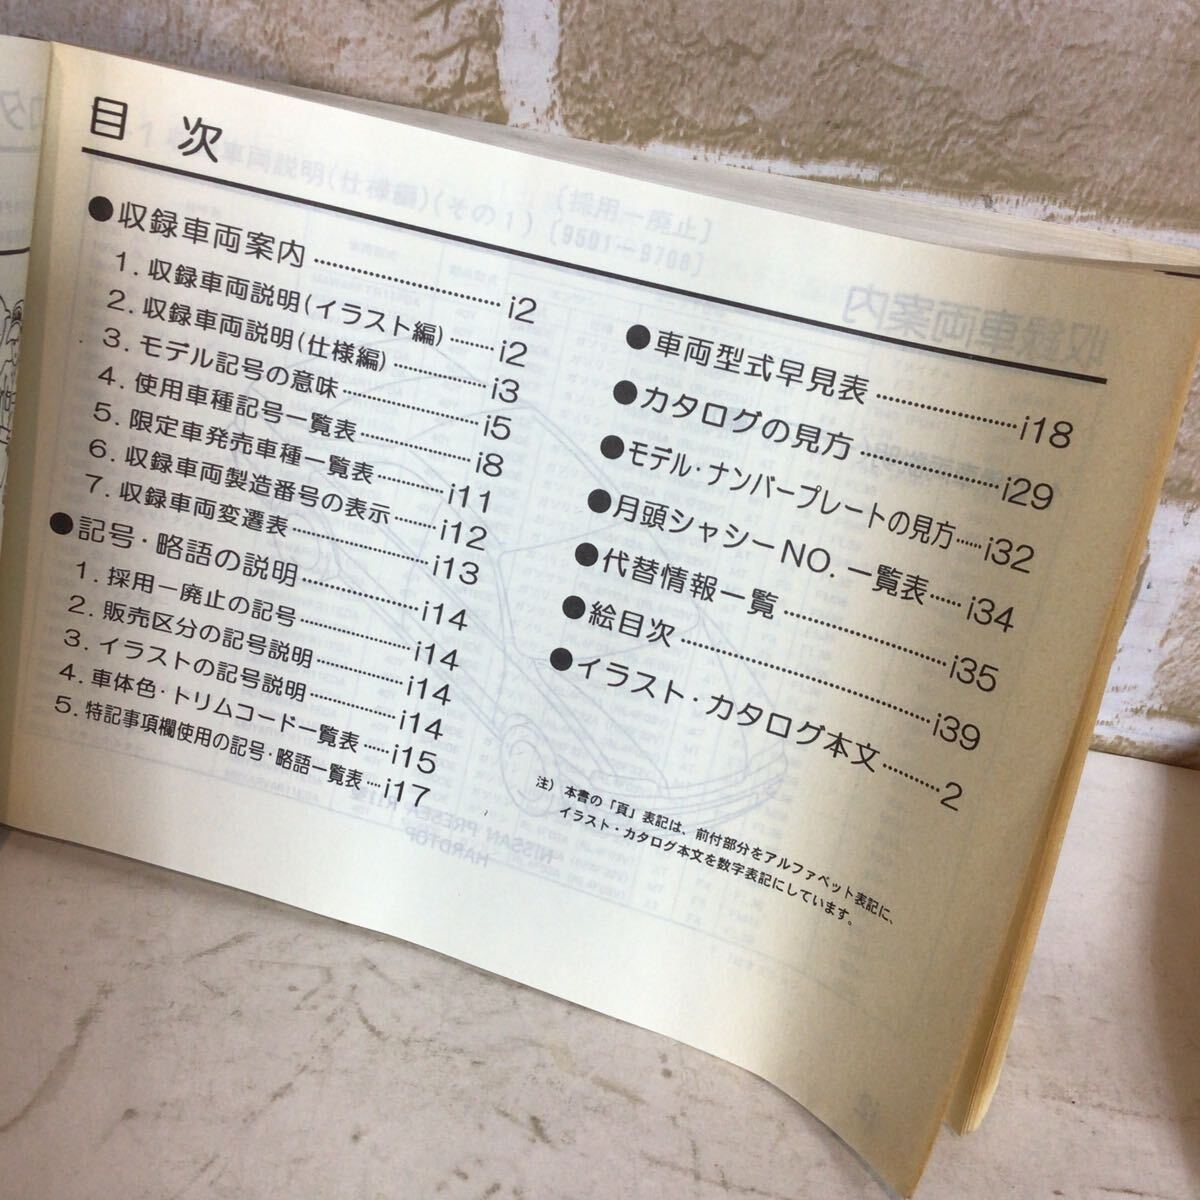 目次
●収録車両案内……………………i2
1. 収録車両説明(イラスト編)………i2
2. 収録車両説明(仕様編)……………i3
3. モデル記号の意味…………………i5
4. 使用車種記号一覧表………………i8
5. 限定車発売車種一覧表……………i11
6. 収録車両製造番号の表示…………i12
7. 収録車両変遷表……………………i13
●記号・略語の説明…………………i14
1. 採用ー廃止の記号…………………i14
2. 販売区分の記号説明………………i14
3. イラストの記号説明………………i14
4. 車体色・トリムコード一覧表……i15
5. 特記事項欄使用の記号・略語一覧表…i17
●車両型式早見表……………………i18
●カタログの見方……………………i29
●モデル・ナンバープレートの見方……i32
●月頭シャシーNO. 一覧表……i34
●代替情報一覧………………………i35
●絵目次………………………………i39
●イラスト・カタログ本文…………2
注) 本書の「頁」表記は、前付部分をアルファベット表記に、
イラスト・カタログ本文を数字表記にしています。
収録車両案内
車両説明(仕様編)(その1)
〔採用ー廃止〕
〔9501ー9708〕
NISSAN PRESEA R11型
HARDTOP
i2